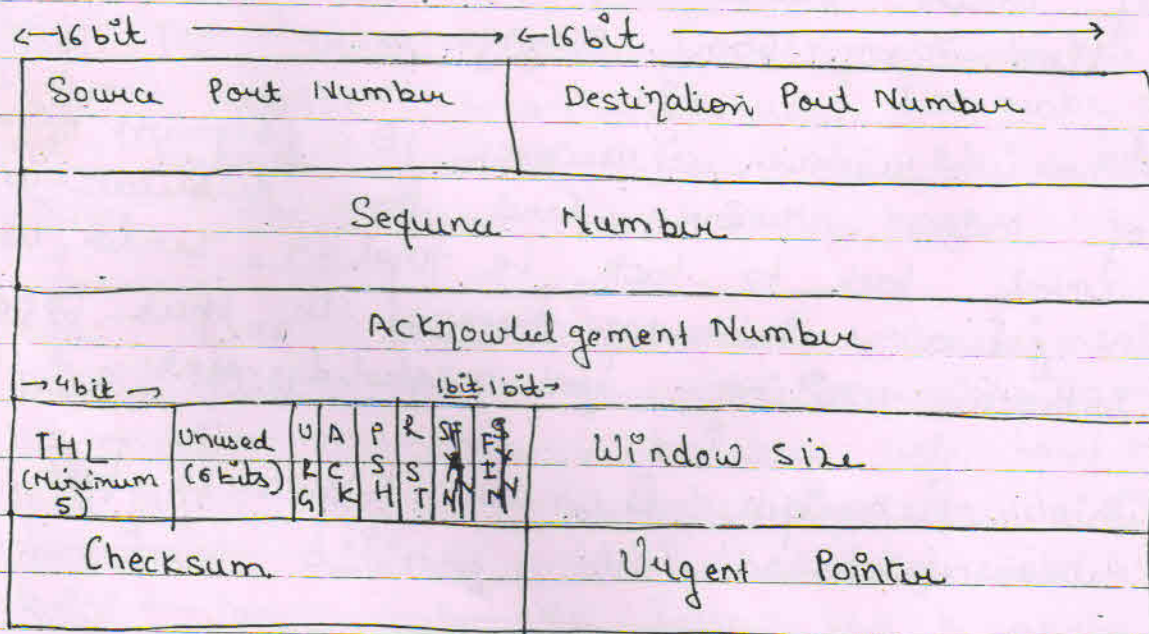 16 bit 16 bit
Source Port Number Destination Port Number
Sequence Number
Acknowledgement Number
4bit 1bit 1bit
IHL (Minimum 5) Unused (6 bits) URG ACK PSH RST SYN FIN Window Size
Checksum Urgent Pointer